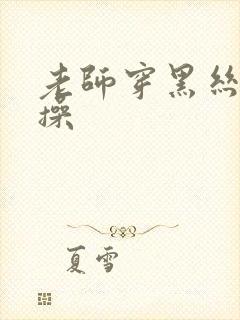 老師穿黑絲
操
夏雪